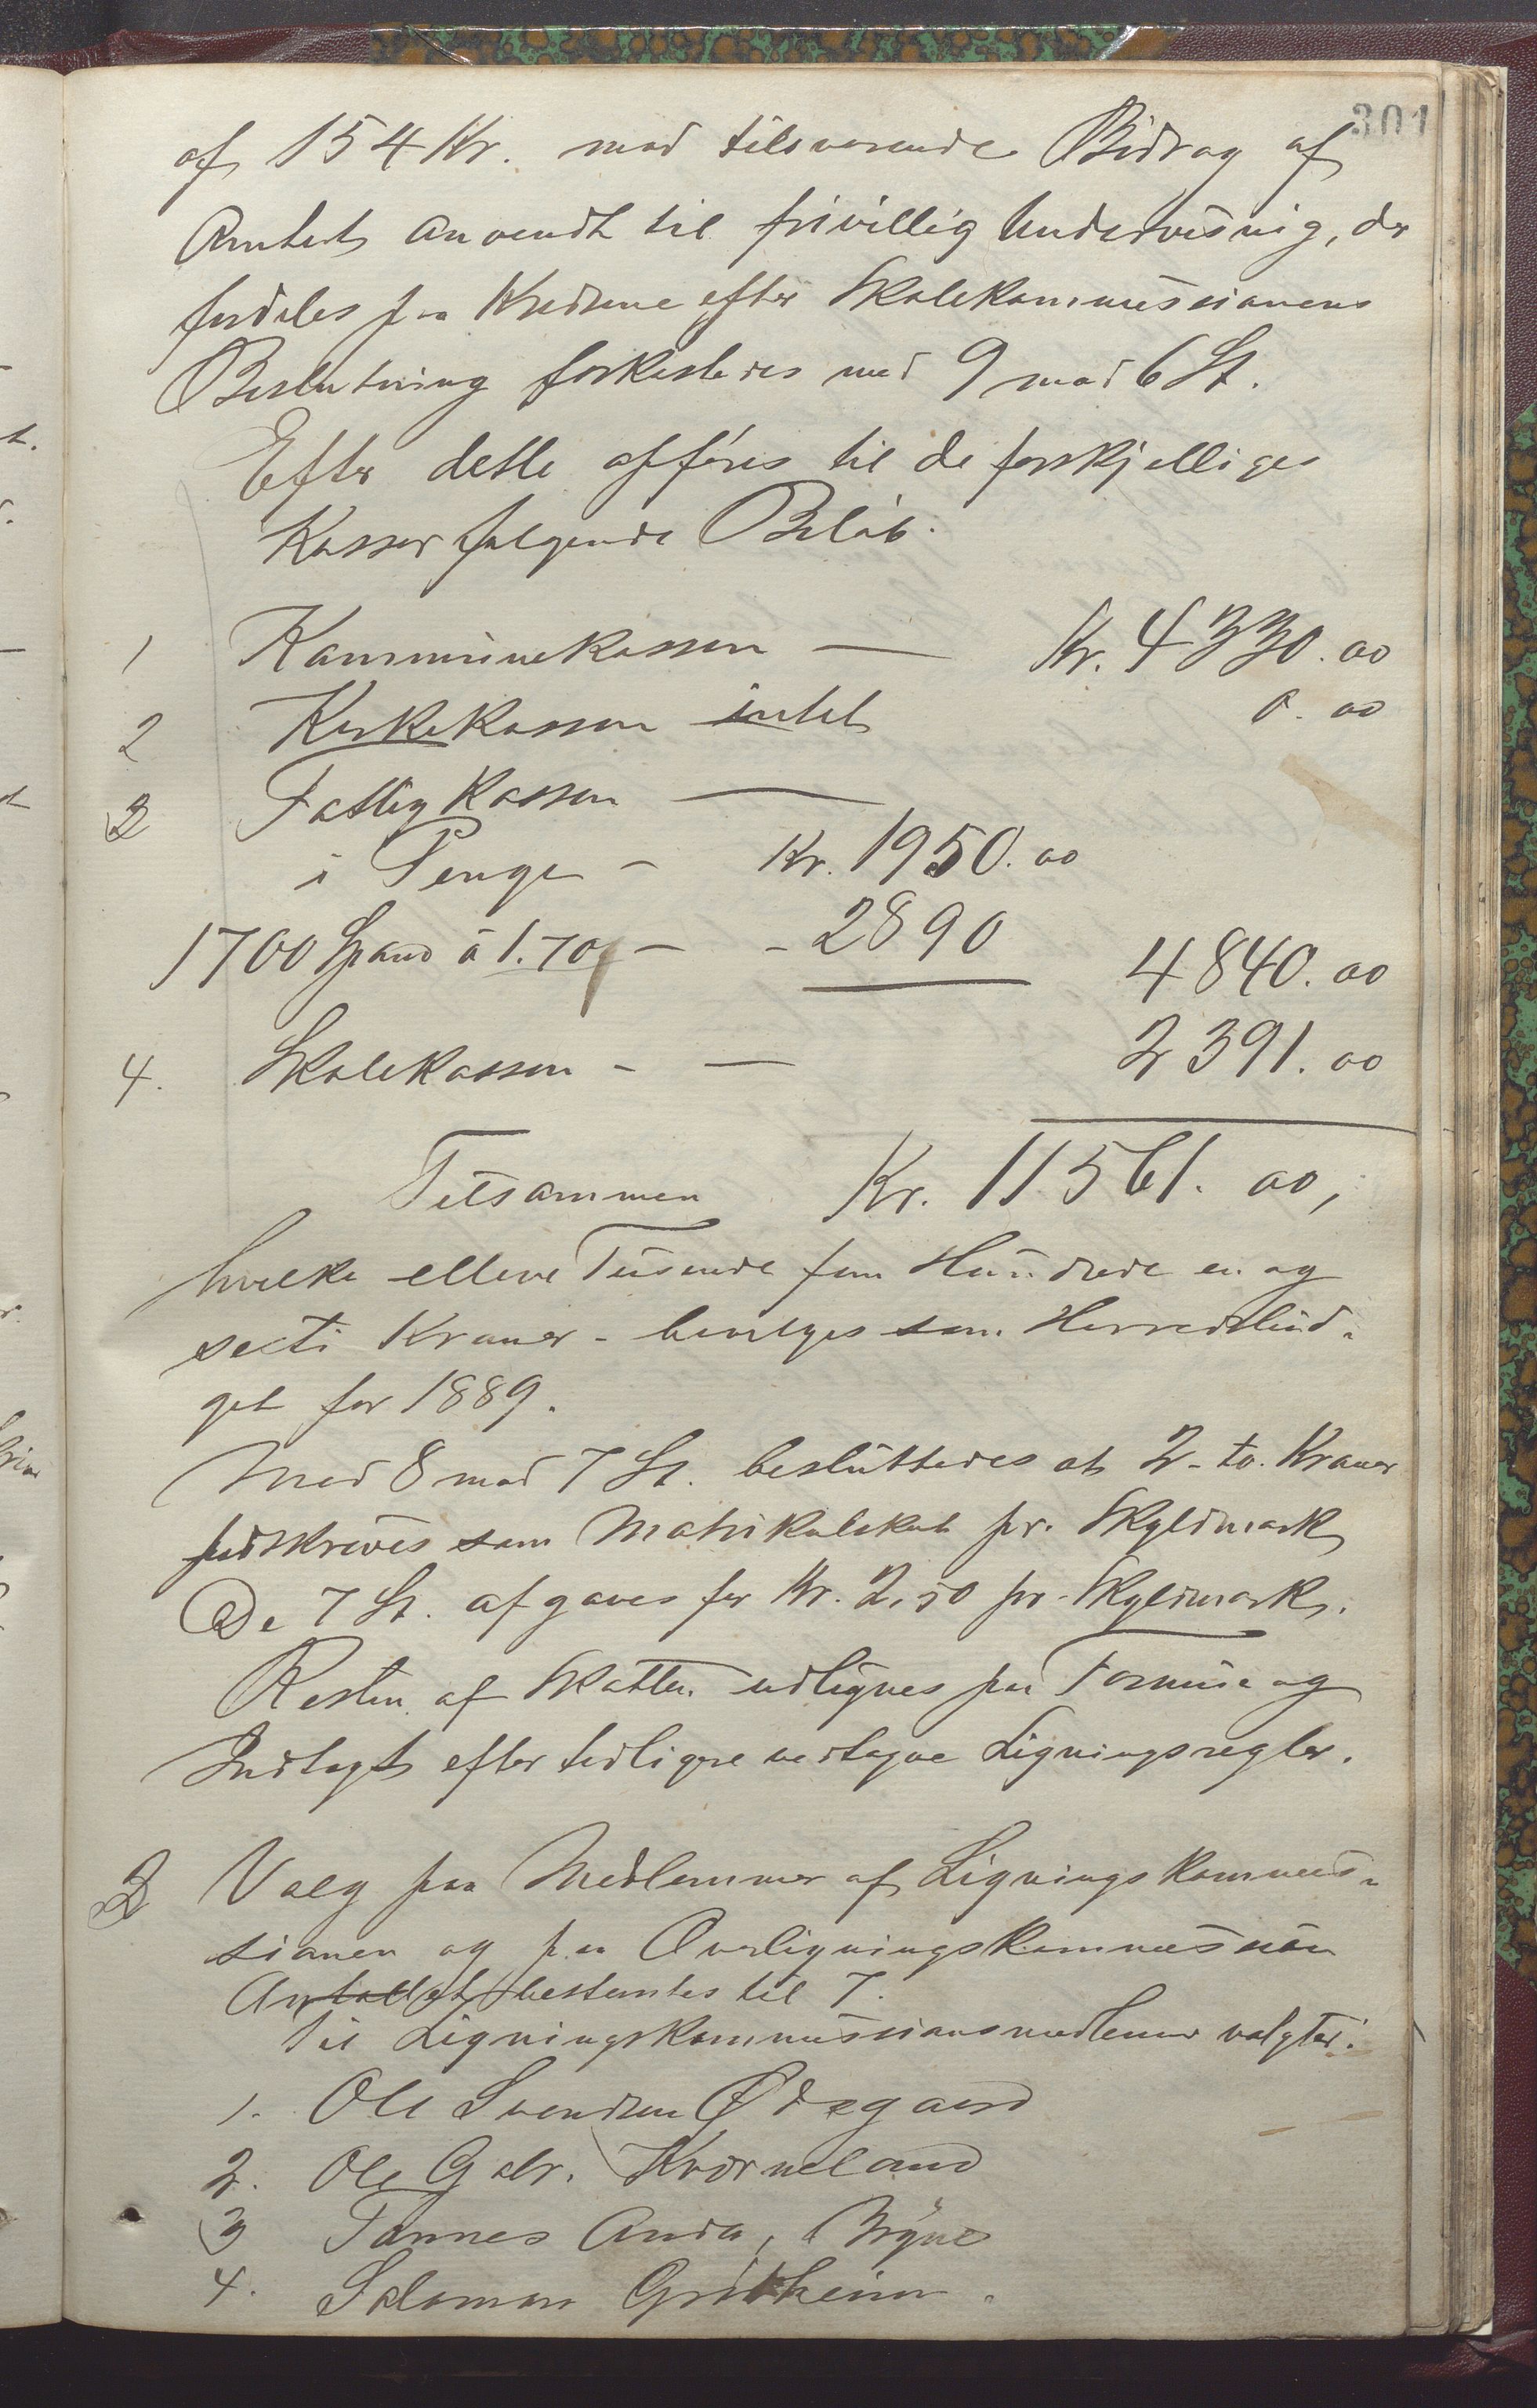 301
af 154 Kr. mod tilsvarende Bidrag af
Amtet anvendt til frivillig Undervisning, der
fordeles paa Kredsene efter Skolekommissionens
Beslutning forkastedes med 9 mod 6 St.
Efter dette opføres til de forskjellige
Kasser følgende Beløb.
1 Kommunekassen — Kr. 4330.00
2 Kirkekassen intet 0.00
3 Fattigkassen —
i Penge - Kr. 1950.00
1700 Spand à 1.70 - - 2890 4840.00
4. Skolekassen - — 2391.00
Tilsammen Kr. 11561.00,
hvilke elleve Tusende fem Hundrede en og
sexti Kroner - bevilges som Herredsbud-
get for 1889.
Med 8 mod 7 St. besluttedes at 2 - to Kroner
udskrives som Matrikulskat pr. Skyldmark
De 7 St. afgaves for Kr. 2,50 pr. Skyldmark.
Resten af Skatten udlignes paa Formue og
Indtægt efter tidligere vedtagne Ligningsregler.
3 Valg paa Medlemmer af Ligningskommis-
sionen og paa Overligningskommission
Antallet bestemtes til 7.
Til Ligningskommissionsmedlemmer valgtes:
1. Ole Svendsen Ødegaard
2. Ole Gabr. Kværneland
3 Tønnes Anda, Bryne
4. Salomon Grødheim.